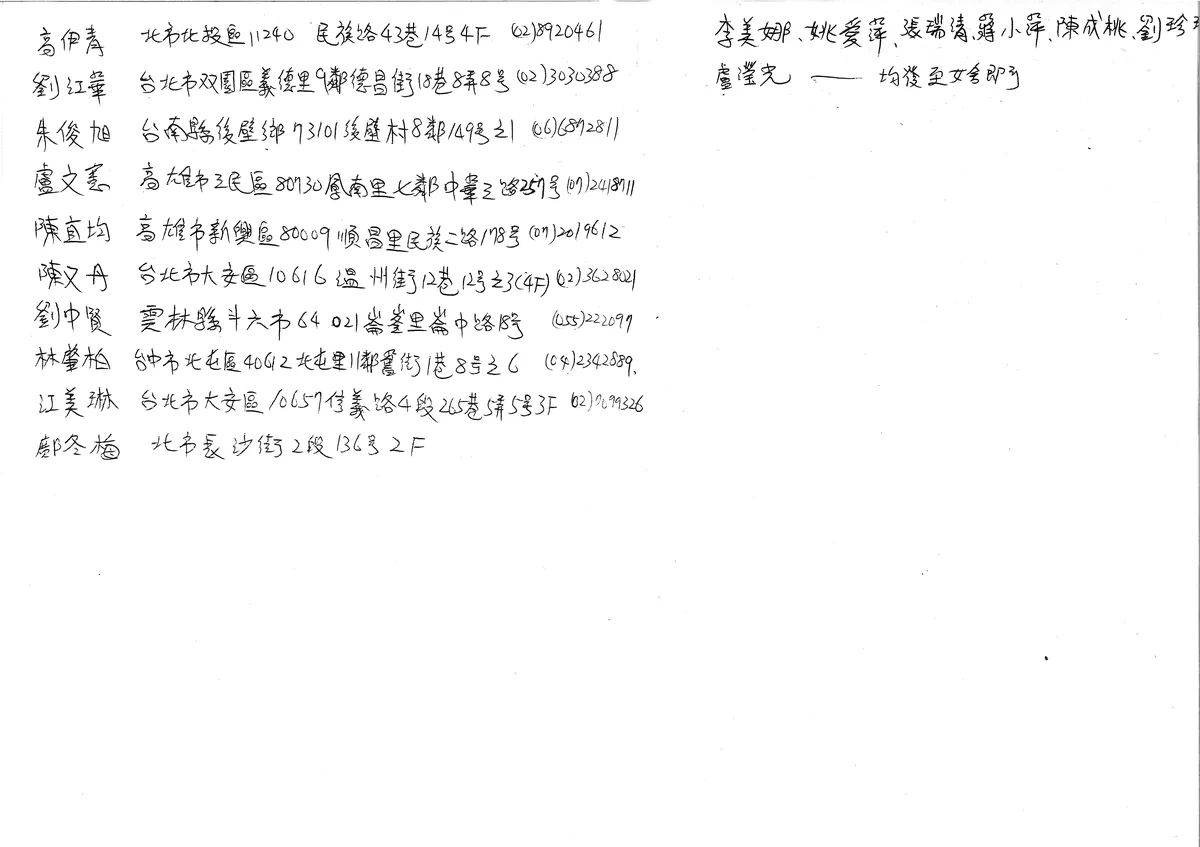 高伊青 北市北投區11240 民族路43巷14号4F (02)8920461
劉江華 台北市双園區義德里9鄰德昌街18巷8弄8号(02)3030388
朱俊旭 台南縣後壁鄉73101後壁村8鄰149号之1 (06)6872811
盧文憲 高雄市三民區80730鳳南里七鄰中華三路257号(07)2418711
陳宜均 高雄市新興區80009順昌里民族二路178号(07)2019612
陳又丹 台北市大安區10616溫州街12巷12号之3(4F)(02)3628021
劉中賢 雲林縣斗六市64021崙峯里崙中路18号 (055)222097
林肇柏 台中市北屯區40612北屯里11鄰舊街1巷8号之6 (04)2342889.
江美琳 台北市大安區10657信義路4段265巷5弄5号3F (02)7079326
鄺冬梅 北市長沙街2段136号2F
李美娜、姚愛萍、張瑞清、蔣小萍、陳成桃、劉珍
盧瀅光 —— 均後至女舍即可